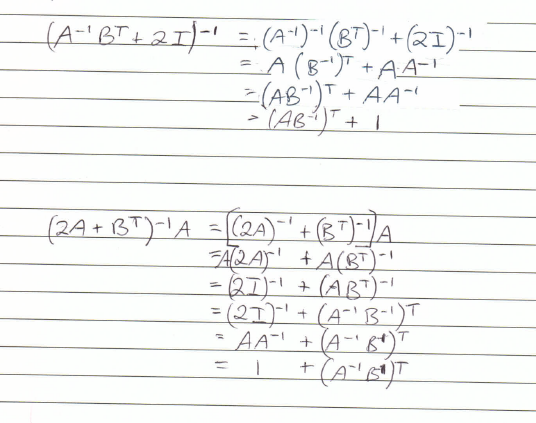 (A⁻¹Bᵀ + 2I)⁻¹ = (A⁻¹)⁻¹(Bᵀ)⁻¹ + (2I)⁻¹
= A(B⁻¹)ᵀ + A A⁻¹
= (AB⁻¹)ᵀ + AA⁻¹
= (AB⁻¹)ᵀ + 1
(2A + Bᵀ)⁻¹A = [(2A)⁻¹ + (Bᵀ)⁻¹]A
= A(2A)⁻¹ + A(Bᵀ)⁻¹
= (2I)⁻¹ + (ABᵀ)⁻¹
= (2I)⁻¹ + (A⁻¹B⁻¹)ᵀ
= AA⁻¹ + (A⁻¹B⁻¹)ᵀ
= 1 + (A⁻¹B⁻¹)ᵀ